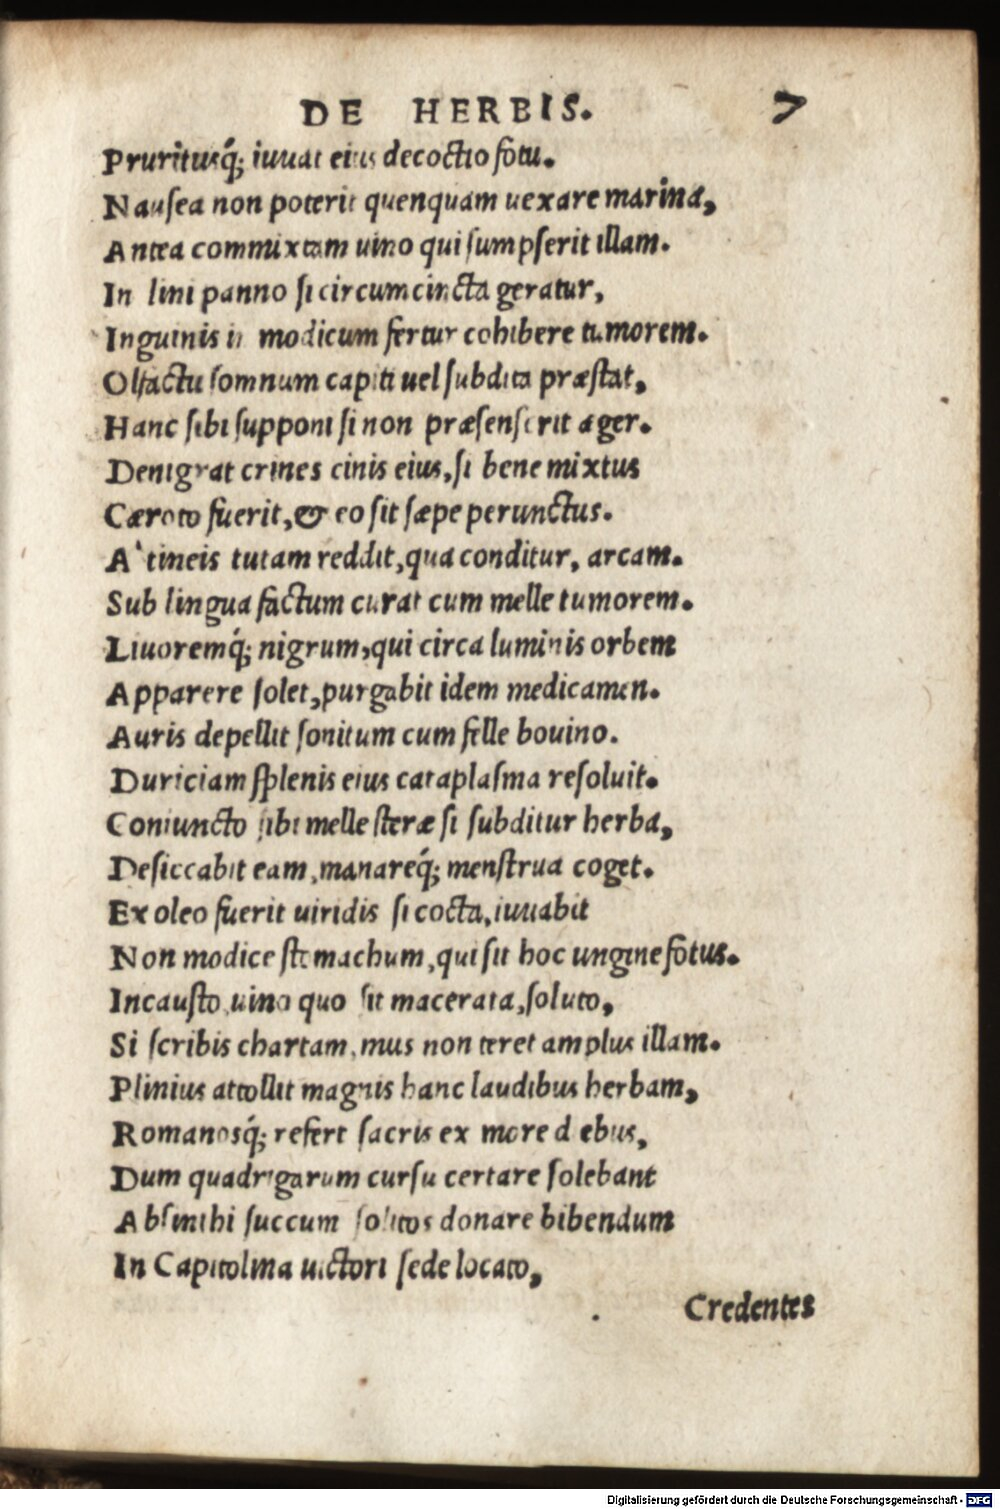 DE HERBIS. 7
Pruritusq́; iuuat eius decoctio fotu.
Nausea non poterit quenquam uexare marina,
Antea commixtam uino qui sumpserit illam.
In lini panno si circumcincta geratur,
Inguinis in modicum fertur cohibere tumorem.
Olfactu somnum capiti uel subdita præstat,
Hanc sibi supponi si non præsenserit æger.
Denigrat crines cinis eius, si bene mixtus
Cæroto fuerit, & eo sit sæpe perunctus.
A' tineis tutam reddit, qua conditur, arcam.
Sub lingua factum curat cum melle tumorem.
Liuoremq́; nigrum, qui circa luminis orbem
Apparere solet, purgabit idem medicamen.
Auris depellit sonitum cum felle bouino.
Duriciam splenis eius cataplasma resoluit.
Coniuncto sibi melle steræ si subditur herba,
Desiccabit eam, manareq́; menstrua coget.
Ex oleo fuerit uiridis si cocta, iuuabit
Non modice stomachum, qui sit hoc ungine fotus.
Incausto, uino quo sit macerata, soluto,
Si scribis chartam, mus non teret amplus illam.
Plinius attollit magnis hanc laudibus herbam,
Romanosq́; refert sacris ex more diebus,
Dum quadrigarum cursu certare solebant
Absinthi succum solitos donare bibendum
In Capitolina uictori sede locato,
Credentes
Digitalisierung gefördert durch die Deutsche Forschungsgemeinschaft - DFG